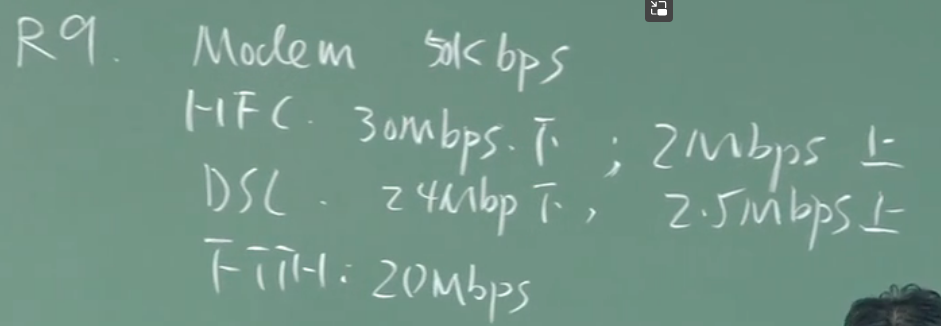 R9. Modem 50Kbps
HFC. 30Mbps.下; 2Mbps 上
DSL. 24Mbp下, 2.5Mbps上
FTTH: 20Mbps